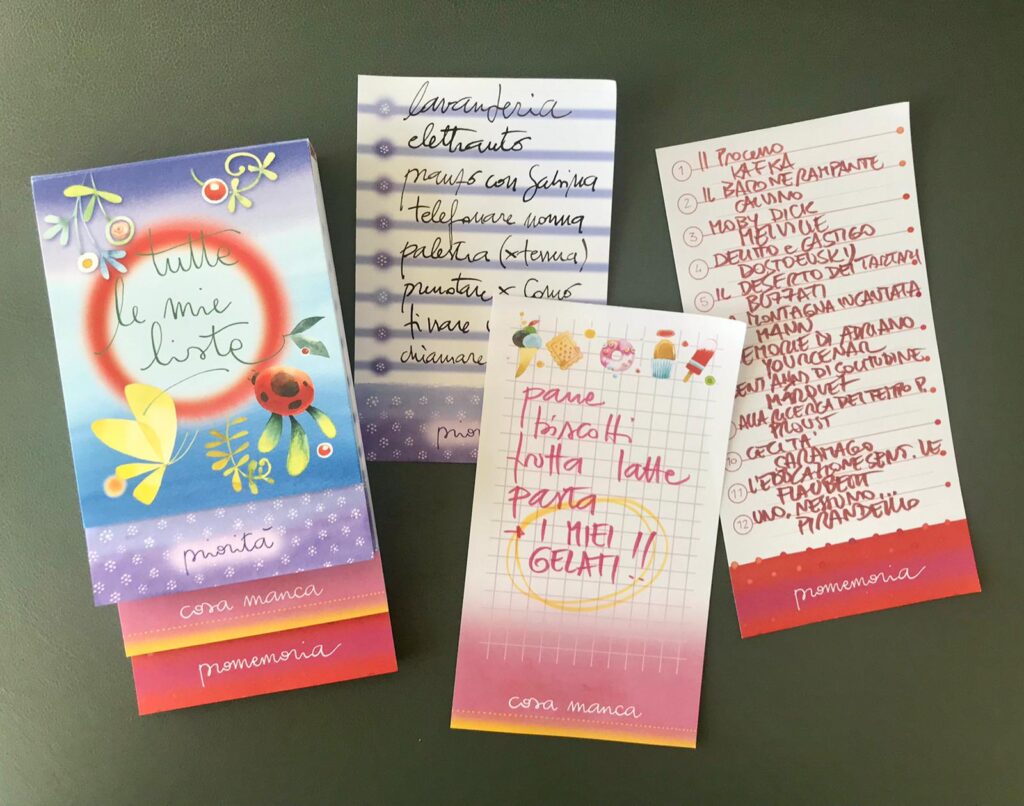 tutte
le mie
liste
priorità
cosa manca
promemoria
lavanderia
elettrauto
pranzo con Sabrina
telefonare nonna
palestra (x terna)
prenotare x Como
tirare
chiamare
pane
biscotti
frutta latte
pasta
→ I MIEI
GELATI!!
cosa manca
1 IL PROCESSO
KAFKA
2 IL BARONE RAMPANTE
CALVINO
3 MOBY DICK
MELVILLE
4 DELITTO e CASTIGO
DOSTOEVSKIJ
5 IL DESERTO DEI TARTARI
BUZZATI
MONTAGNA INCANTATA
MANN
EMORIE DI ADRIANO
YOURCENAR
CENT'ANNI DI SOLITUDINE
MARQUEZ
ALLA RICERCA DEL TEMPO P.
PROUST
10 CECITÀ
SARAMAGO
11 L'EDUCAZIONE SENT. LE
FLAUBERT
12 UNO, NESSUNO...
PIRANDELLO
promemoria